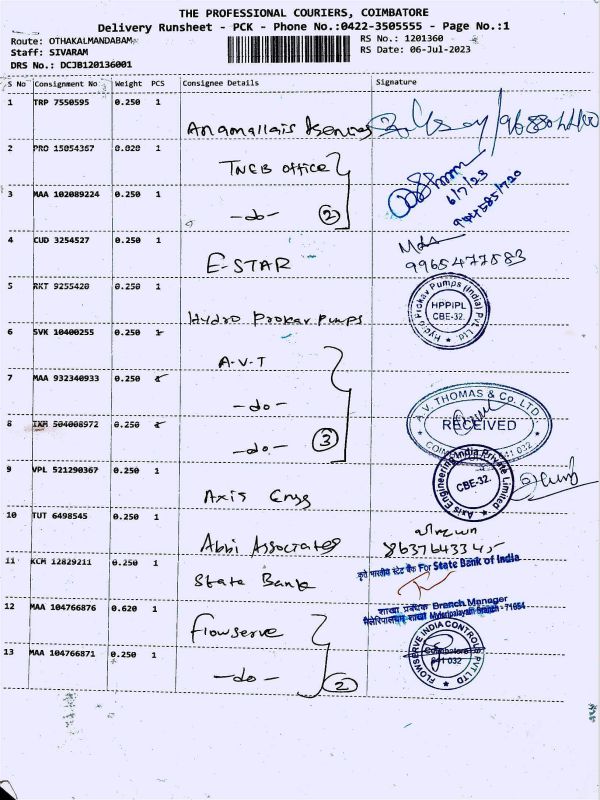 THE PROFESSIONAL COURIERS, COIMBATORE
Delivery Runsheet - PCK - Phone No.:0422-3505555 - Page No.:1
Route: OTHAKALMANDABAM
RS No.: 1201360
Staff: SIVARAM
RS Date: 06-Jul-2023
DRS No.: DCJB120136001
S No Consignment No Weight PCS Consignee Details Signature
1 TRP 7550595 0.250 1
Anamallais
2 PRO 15054367 0.020 1
TNEB office
6/7/23
3 MAA 102089224 0.250 1
-do- 2
4 CUD 3254527 0.250 1
E-STAR
9965477583
5 RKT 9255420 0.250 1
Hydro Prokav Pumps
Hydro Prokav Pumps (India) Pvt. Ltd.
HPPIPL
CBE-32.
6 SVK 10400255 0.250 1
A-V-T
7 MAA 932340933 0.250 1
-do-
A.V. THOMAS & Co. LTD
RECEIVED
8 IXM 504008972 0.250 1
-do- 3
9 VPL 521290367 0.250 1
Axis Engg
Axis Engineering India Private Limited
CBE-32.
10 TUT 6498545 0.250 1
Abbi Associates
11 KCM 12829211 0.250 1
State Bank
कृते भारतीय स्टेट बैंक For State Bank of India
शाखा प्रबंधक Branch Manager
12 MAA 104766876 0.620 1
Flowserve
13 MAA 104766871 0.250 1
-do- 2
FLOWSERVE INDIA CONTROLS PVT LTD
Coimbatore
641 032